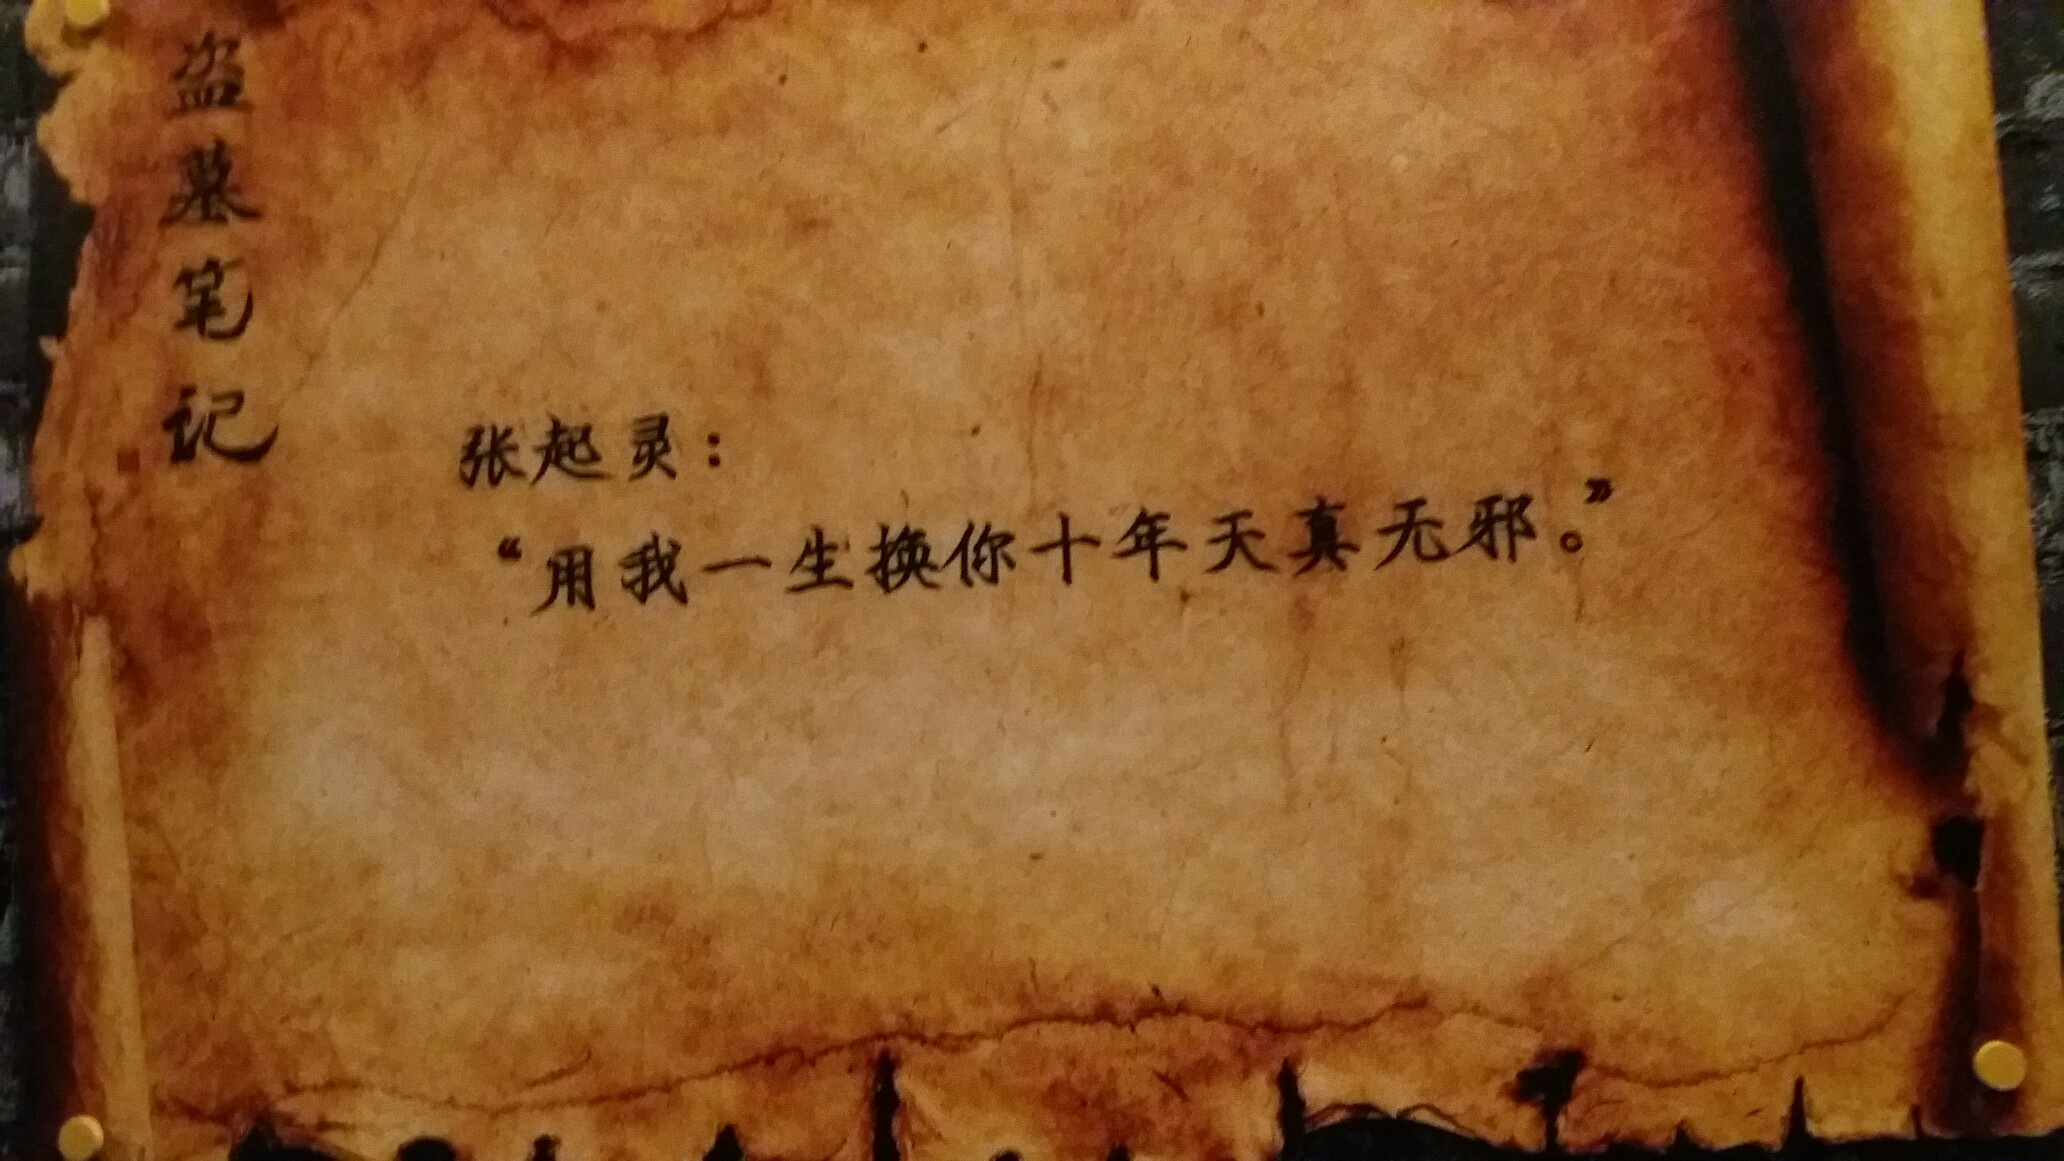 盗墓笔记
张起灵：
“用我一生换你十年天真无邪。”